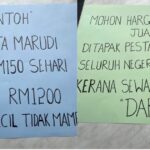 NTOH"
TA MARUDI
M150 SEHARI
RM1200
ECIL TIDAK MAMP
MOHON HARG
JUA
DITAPAK PESTA
SELURUH NEGER
KERANA SEWA
"DAH